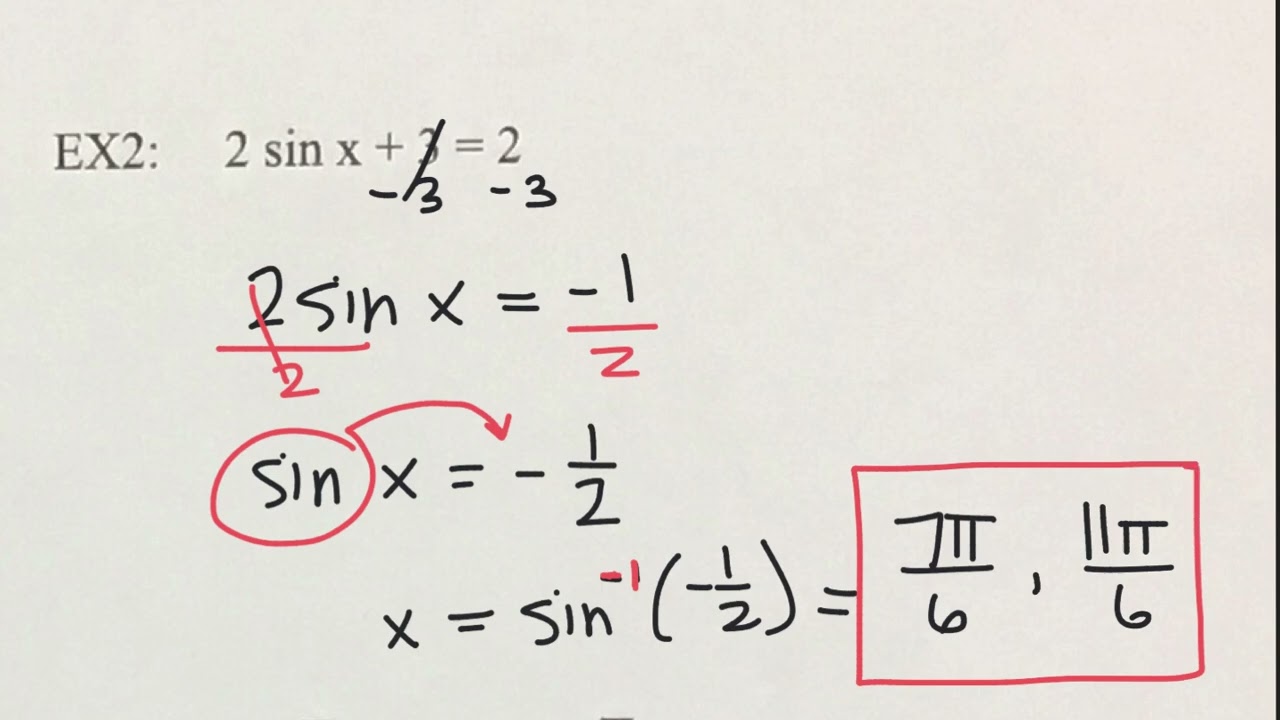 EX2: 2 sin x + 3 = 2
-3 -3
2 sin x = -1
2 2
sin x = - 1/2
x = sin⁻¹ (-1/2) = 7π/6 , 11π/6